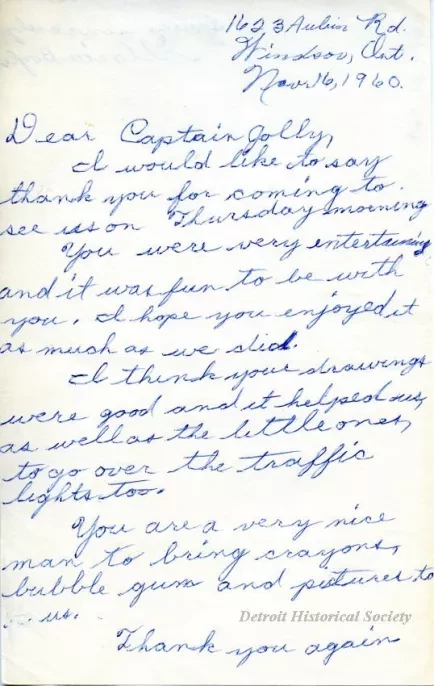 1623 Aubin Rd.
Windsor, Ont.
Nov 16, 1960.
Dear Captain Jolly,
I would like to say
thank you for coming to
see us on Thursday morning
You were very entertaining
and it was fun to be with
you. I hope you enjoyed it
as much as we did.
I think your drawings
were good and it helped us,
as well as the little ones,
to go over the traffic
lights too.
You are a very nice
man to bring crayons,
bubble gum and pictures to
us.
Detroit Historical Society
Thank you again